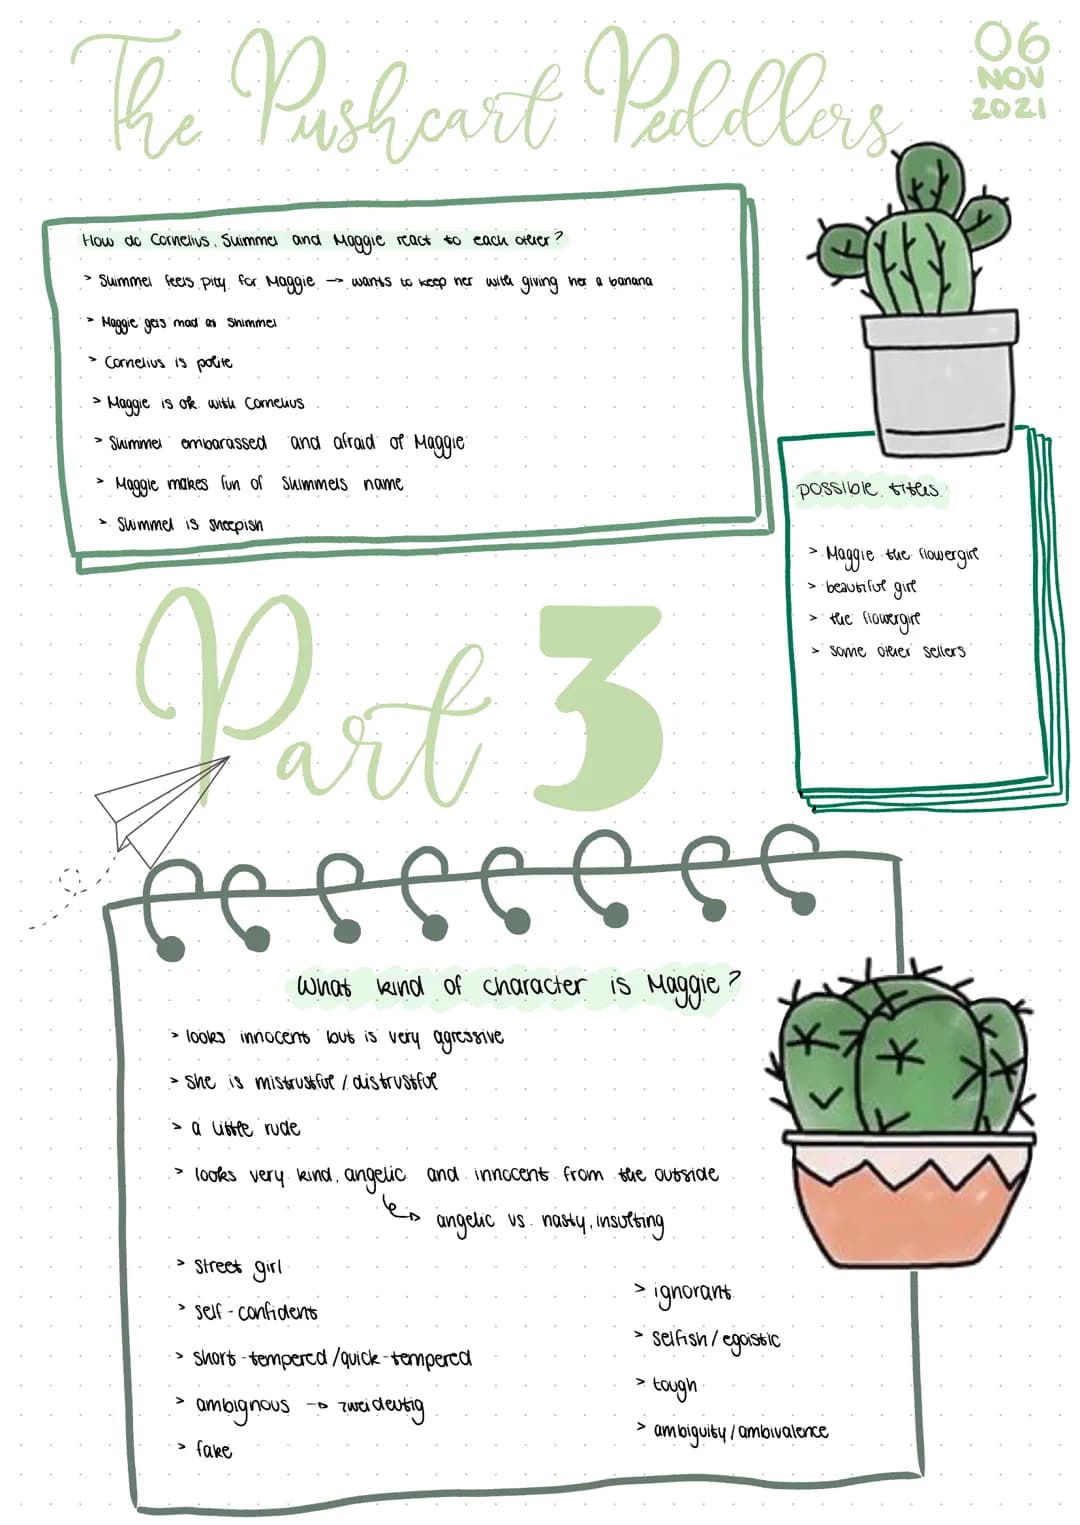 The Pushcart Peddlers
06
NOV
2021
How do Cornelius, Shimmel and Maggie react to each other?
> Shimmel feels pity for Maggie → wants to keep her with giving her a banana
> Maggie gets mad at Shimmel
> Cornelius is polite
> Maggie is ok with Cornelius
> Shimmel embarassed and afraid of Maggie
> Maggie makes fun of Shimmels name
> Shimmel is sheepish
possible titles
> Maggie the flowergirl
> beautiful girl
> the flowergirl
> some other sellers
Part 3
What kind of character is Maggie?
> looks innocent but is very agressive
> she is mistrustful / distrustful
> a little rude
> looks very kind, angelic and innocent from the outside
↳ angelic vs. nasty, insulting
> street girl
> self-confident
> short-tempered / quick-tempered
> ambignous → zweideutig
> fake
> ignorant
> selfish / egoistic
> tough
> ambiguity / ambivalence